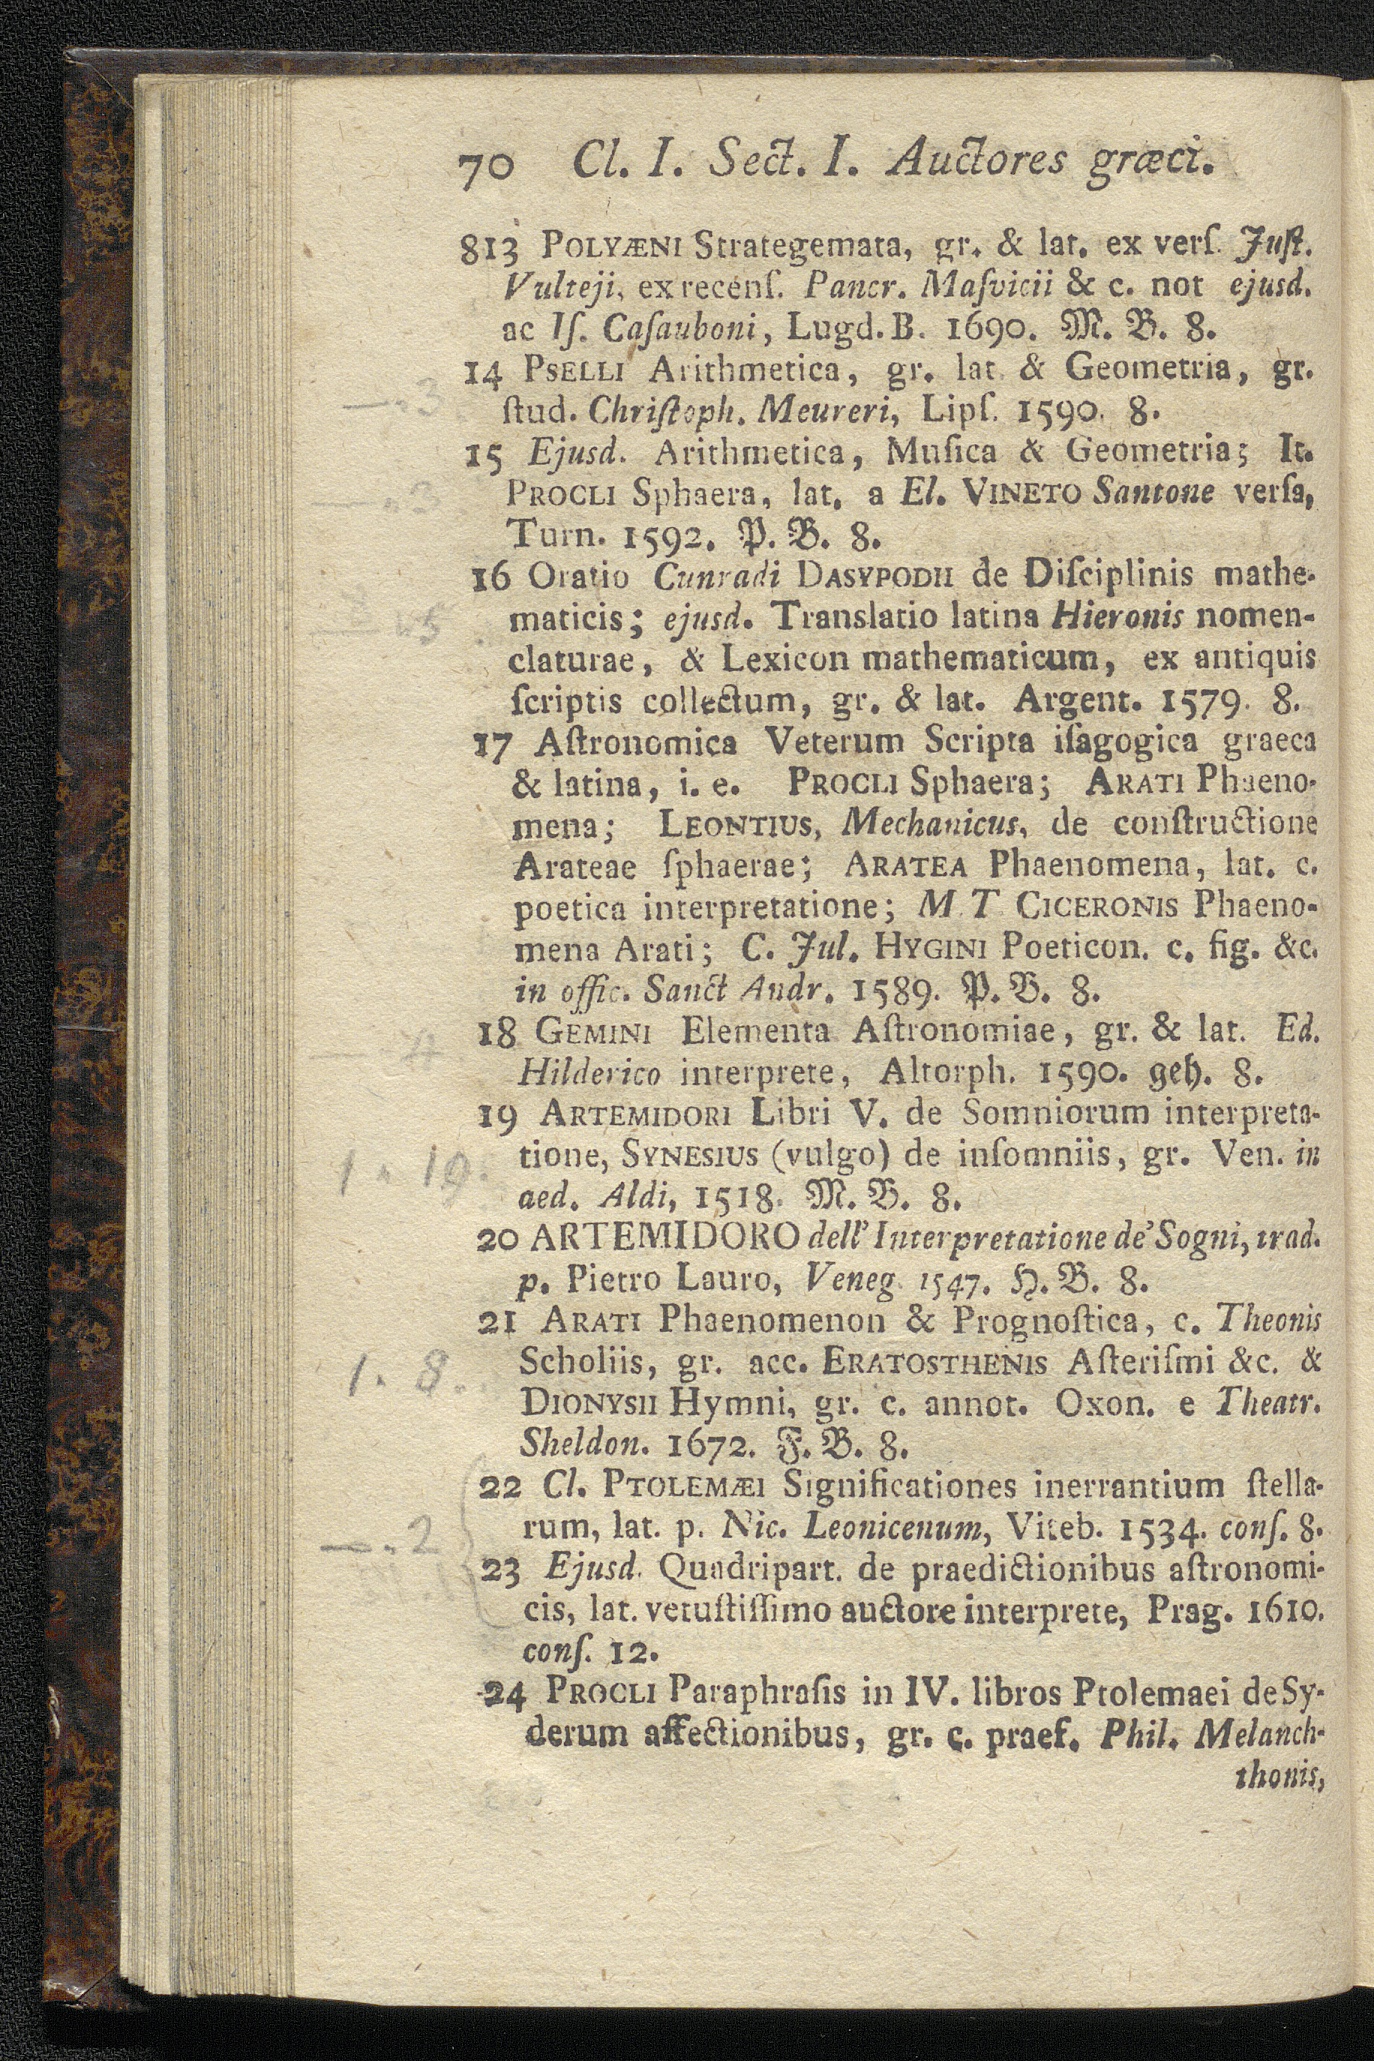 70 Cl. I. Sect. I. Auctores græci.
813 POLYÆNI Strategemata, gr. & lat. ex verſ. Juſt.
Vulteji, ex recenſ. Pancr. Maſvicii & c. not ejusd.
ac Iſ. Caſauboni, Lugd. B. 1690. M. B. 8.
14 PSELLI Arithmetica, gr. lat. & Geometria, gr.
—.3
ſtud. Chriſtoph. Meureri, Lipſ. 1590. 8.
15 Ejusd. Arithmetica, Muſica & Geometria; It.
—.3
PROCLI Sphaera, lat. a El. VINETO Santone verſa,
Turn. 1592. P. B. 8.
16 Oratio Cunradi DASYPODII de Diſciplinis mathe-
maticis; ejusd. Translatio latina Hieronis nomen-
claturae, & Lexicon mathematicum, ex antiquis
ſcriptis collectum, gr. & lat. Argent. 1579. 8.
17 Aſtronomica Veterum Scripta iſagogica graeca
& latina, i. e. PROCLI Sphaera; ARATI Phaeno-
mena; LEONTIUS, Mechanicus, de conſtructione
Arateae ſphaerae; ARATEA Phaenomena, lat. c.
poetica interpretatione; M. T. CICERONIS Phaeno-
mena Arati; C. Jul. HYGINI Poeticon. c. fig. &c.
in offic. Sanct Andr. 1589. P. B. 8.
18 GEMINI Elementa Aſtronomiae, gr. & lat. Ed.
Hilderico interprete, Altorph. 1590. geh. 8.
19 ARTEMIDORI Libri V. de Somniorum interpreta-
1. 19.
tione, SYNESIUS (vulgo) de inſomniis, gr. Ven. in
aed. Aldi, 1518. M. B. 8.
20 ARTEMIDORO dell' Interpretatione de' Sogni, trad.
p. Pietro Lauro, Veneg. 1547. H. B. 8.
21 ARATI Phaenomenon & Prognoſtica, c. Theonis
1. 8.
Scholiis, gr. acc. ERATOSTHENIS Aſteriſmi &c. &
DIONYSII Hymni, gr. c. annot. Oxon. e Theatr.
Sheldon. 1672. F. B. 8.
22 Cl. PTOLEMÆI Significationes inerrantium ſtella-
—.2
rum, lat. p. Nic. Leonicenum, Viteb. 1534. conſ. 8.
23 Ejusd. Quadripart. de praedictionibus aſtronomi-
cis, lat. vetuſtiſſimo auctore interprete, Prag. 1610.
conſ. 12.
24 PROCLI Paraphraſis in IV. libros Ptolemaei de Sy-
derum affectionibus, gr. c. praef. Phil. Melanch-
thonis,